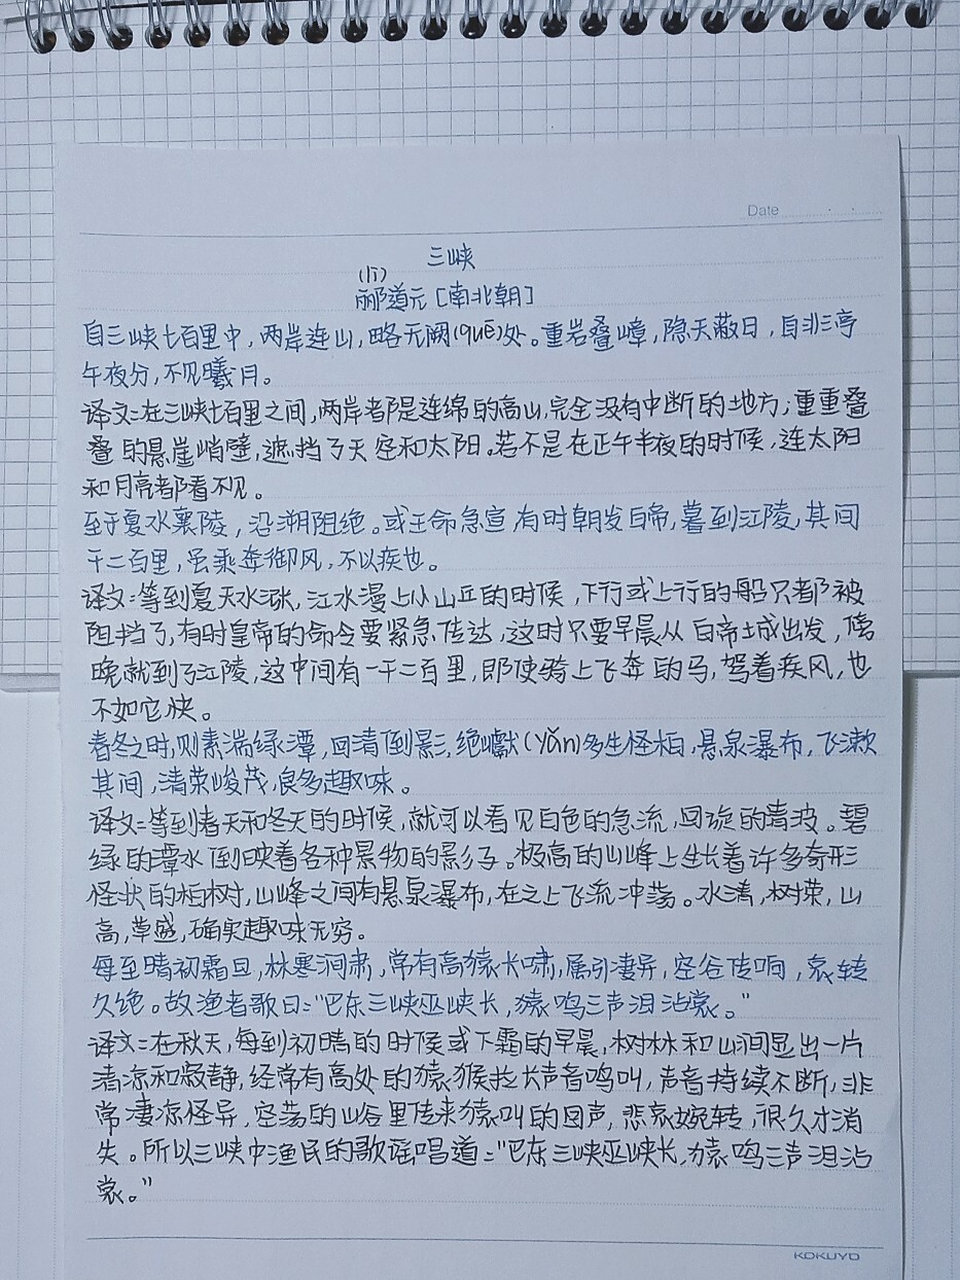 Date
三峡
(lì)
郦道元[南北朝]
自三峡七百里中，两岸连山，略无阙(quē)处。重岩叠嶂，隐天蔽日，自非亭
午夜分，不见曦月。
译文：在三峡七百里之间，两岸都是连绵的高山，完全没有中断的地方；重重叠
叠的悬崖峭壁，遮挡了天空和太阳。若不是在正午半夜的时候，连太阳
和月亮都看不见。
至于夏水襄陵，沿溯阻绝。或王命急宣，有时朝发白帝，暮到江陵，其间
千二百里，虽乘奔御风，不以疾也。
译文：等到夏天水涨，江水漫上小山丘的时候，下行或上行的船只都被
阻挡了，有时皇帝的命令要紧急传达，这时只要早晨从白帝城出发，傍
晚就到了江陵，这中间有一千二百里，即使骑上飞奔的马，驾着疾风，也
不如它快。
春冬之时，则素湍绿潭，回清倒影，绝巘(yǎn)多生怪柏，悬泉瀑布，飞漱
其间，清荣峻茂，良多趣味。
译文：等到春天和冬天的时候，就可以看见白色的急流，回旋的清波。碧
绿的潭水倒映着各种景物的影子。极高的山峰上生长着许多奇形
怪状的柏树，山峰之间有悬泉瀑布，在之上飞流冲荡。水清，树荣，山
高，草盛，确实趣味无穷。
每至晴初霜旦，林寒涧肃，常有高猿长啸，属引凄异，空谷传响，哀转
久绝。故渔者歌曰："巴东三峡巫峡长，猿鸣三声泪沾裳。"
译文：在秋天，每到初晴的时候或下霜的早晨，树林和山涧显出一片
清凉和寂静，经常有高处的猿猴拉长声音鸣叫，声音持续不断，非
常凄凉怪异，空荡的山谷里传来猿叫的回声，悲哀婉转，很久才消
失。所以三峡中渔民的歌谣唱道："巴东三峡巫峡长，猿鸣三声泪沾
裳。"
KOKUYO